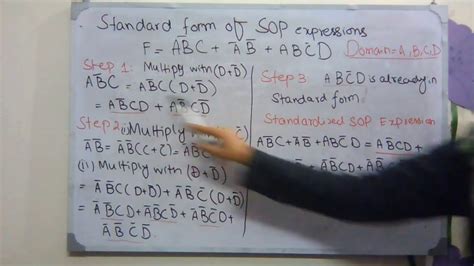 Standard form of SOP expressions
F = AB̅C + A̅B̅ + ABC̅D Domain = A,B,C,D
Step 1: Multiply with (D+D̅)
AB̅C = AB̅C(D+D̅)
= AB̅CD + AB̅CD̅
Step 2: (i) Multiply
A̅B̅ = A̅B̅(C+C̅) = A̅B̅C
(ii) Multiply with (D+D̅)
= A̅B̅C(D+D̅) + A̅B̅C̅(D+D̅)
= A̅B̅CD + A̅B̅CD̅ + A̅B̅C̅D +
A̅B̅C̅D̅
Step 3: ABC̅D is already in
Standard form.
Standardised SOP Expression
AB̅C + A̅B̅ + ABC̅D = AB̅CD +